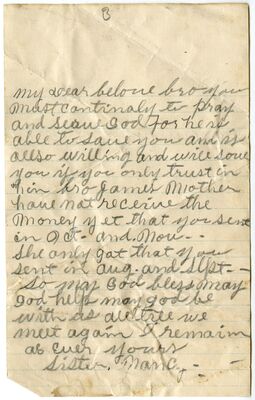 8
my dear belove bro you
must continaly to pray
and serve God for he is
able to save you and is
allso willing and will save
you if you only trust in
him bro James Mother
have not receive the
money yet that you sent
in Oct- and Nov--
She only got that you
sent in Aug. and Sept.-
So may God bless may
God help may god be
with us all till we
meet again I remaim
as ever yours
Sister.